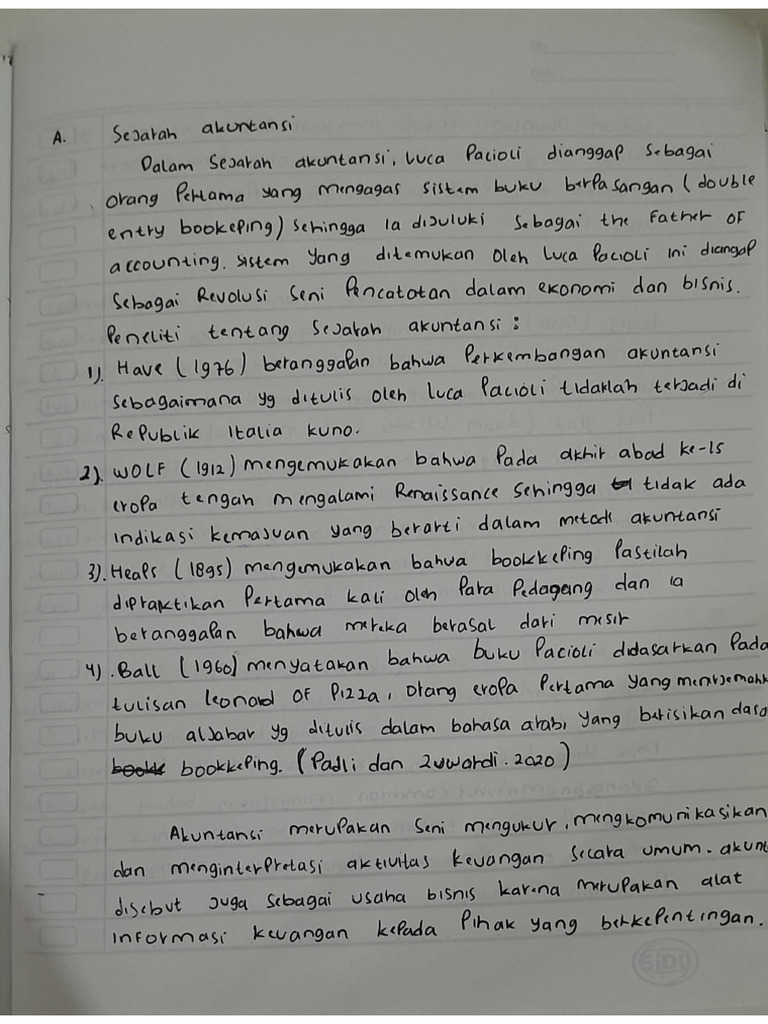 No:
Date:
A. Sejarah akuntansi
Dalam Sejarah akuntansi, Luca Pacioli dianggap sebagai
orang Pertama yang mengagas sistem buku berpasangan (double
entry bookeping) sehingga ia dijuluki sebagai the Father OF
accounting. sistem yang ditemukan oleh Luca Pacioli ini diangap
sebagai Revolusi seni Pencatatan dalam ekonomi dan bisnis.
Peneliti tentang Sejarah akuntansi :
1). Have (1976) beranggapan bahwa Perkembangan akuntansi
sebagaimana yg ditulis oleh Luca Pacioli tidaklah terjadi di
Republik Italia kuno.
2). WOLF (1912) mengemukakan bahwa Pada akhir abad ke-15
eropa tengah mengalami Renaissance sehingga tidak ada
indikasi kemajuan yang berarti dalam metode akuntansi
3). Heaps (1895) mengemukakan bahwa bookkeping Pastilah
dipraktikan Pertama kali oleh Para Pedagang dan ia
beranggapan bahwa mereka berasal dari mesir
4). Ball (1960) menyatakan bahwa buku Pacioli didasarkan Pada
tulisan Leonard OF Pizza, orang eropa Pertama yang menterjemahk
buku aljabar yg ditulis dalam bahasa arab, yang berisikan dasa
bookkeping. (Padli dan Zuwardi. 2020)
Akuntansi merupakan seni mengukur, mengkomunikasikan
dan menginterpretasi aktivitas keuangan secara umum. akunt
disebut juga sebagai usaha bisnis karena merupakan alat
informasi keuangan kepada Pihak yang berkepentingan.
SIDU